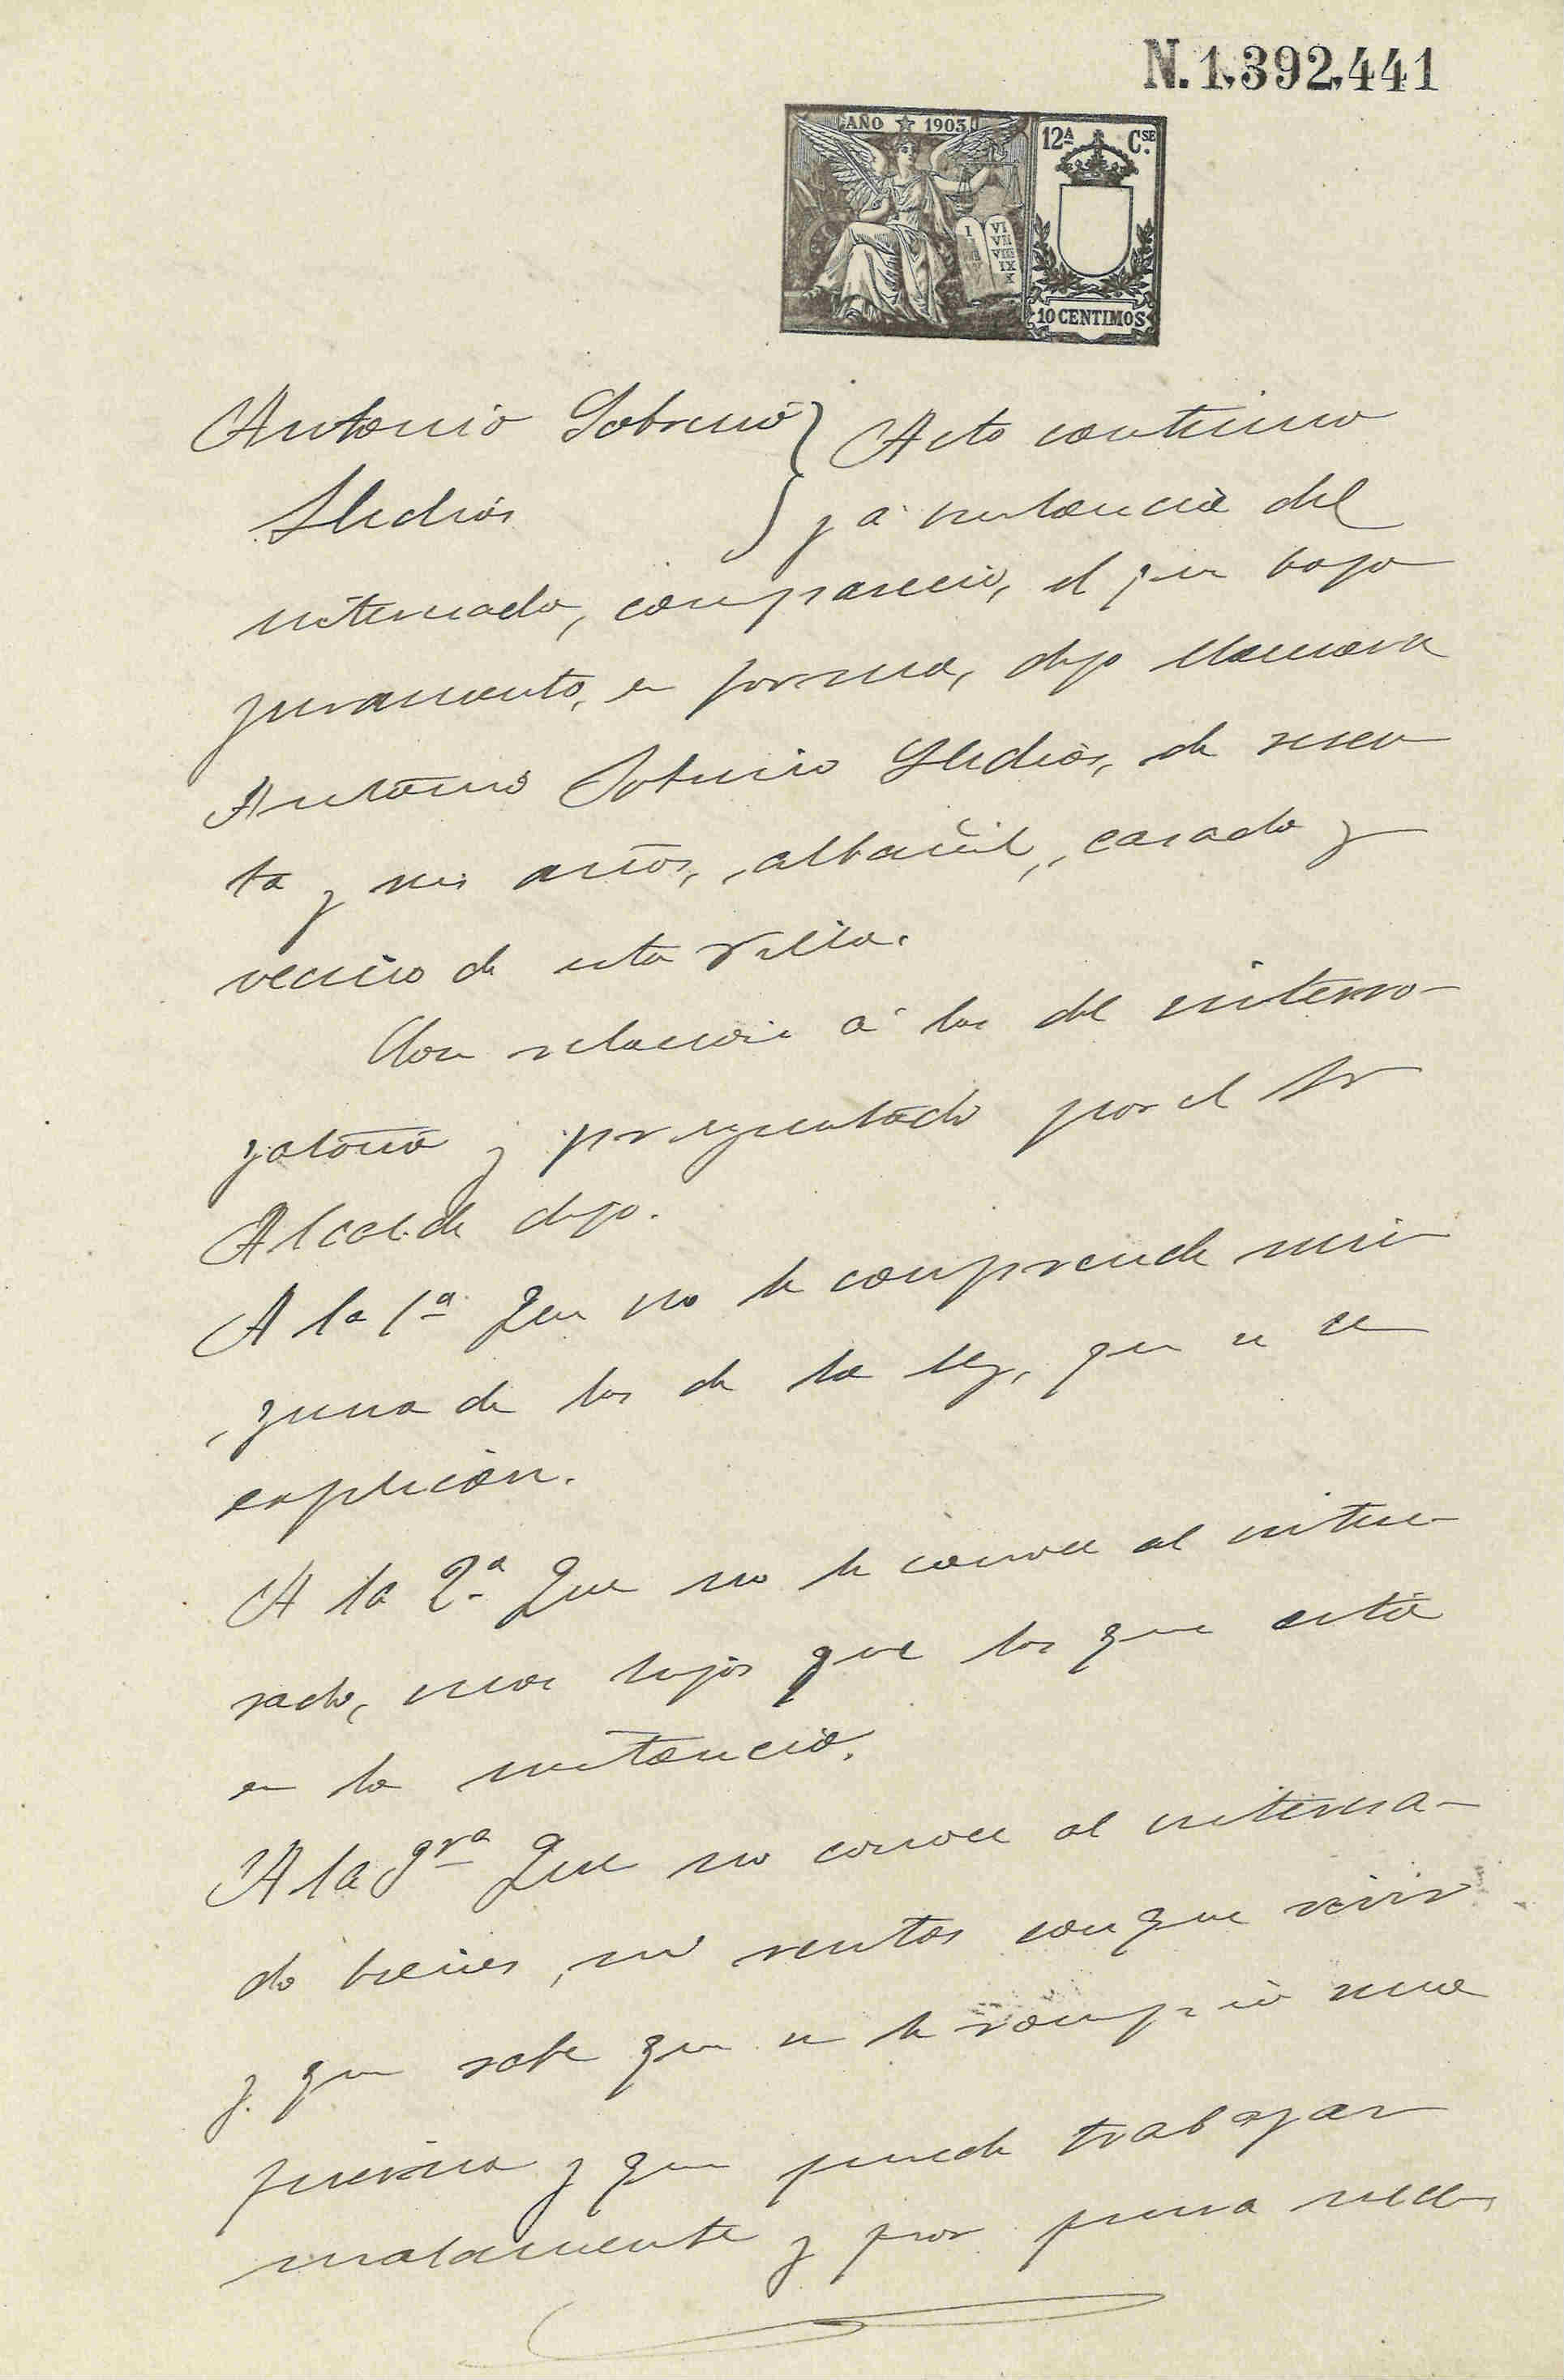 N. 1.392.441
AÑO 1903
12ª Cse.
10 CENTIMOS
I VI VII VIII IX X
Antonio Sobrino } Acto continuo
y á instancia del
interesado, compareció, el que bajo
juramento, en forma, dijo llamarse
Antonio Sobrino de sesen
ta y seis años, albañil, casado y
vecino de esta Villa.
Con relación á las del interro-
gatorio y preguntado por el Sr
Alcalde dijo.
A la 1ª Que no le comprende nin
guna de las de la ley, que se le
explican.
A la 2ª Que no le conoce al intere
sado, mas hijos que los que cita
en la instancia.
A la 3ra Que no conoce al interesa-
do bienes, ni rentas con que vivir
y que sabe que se le rompió una
pierna y que puede trabajar
malamente y por pura neces